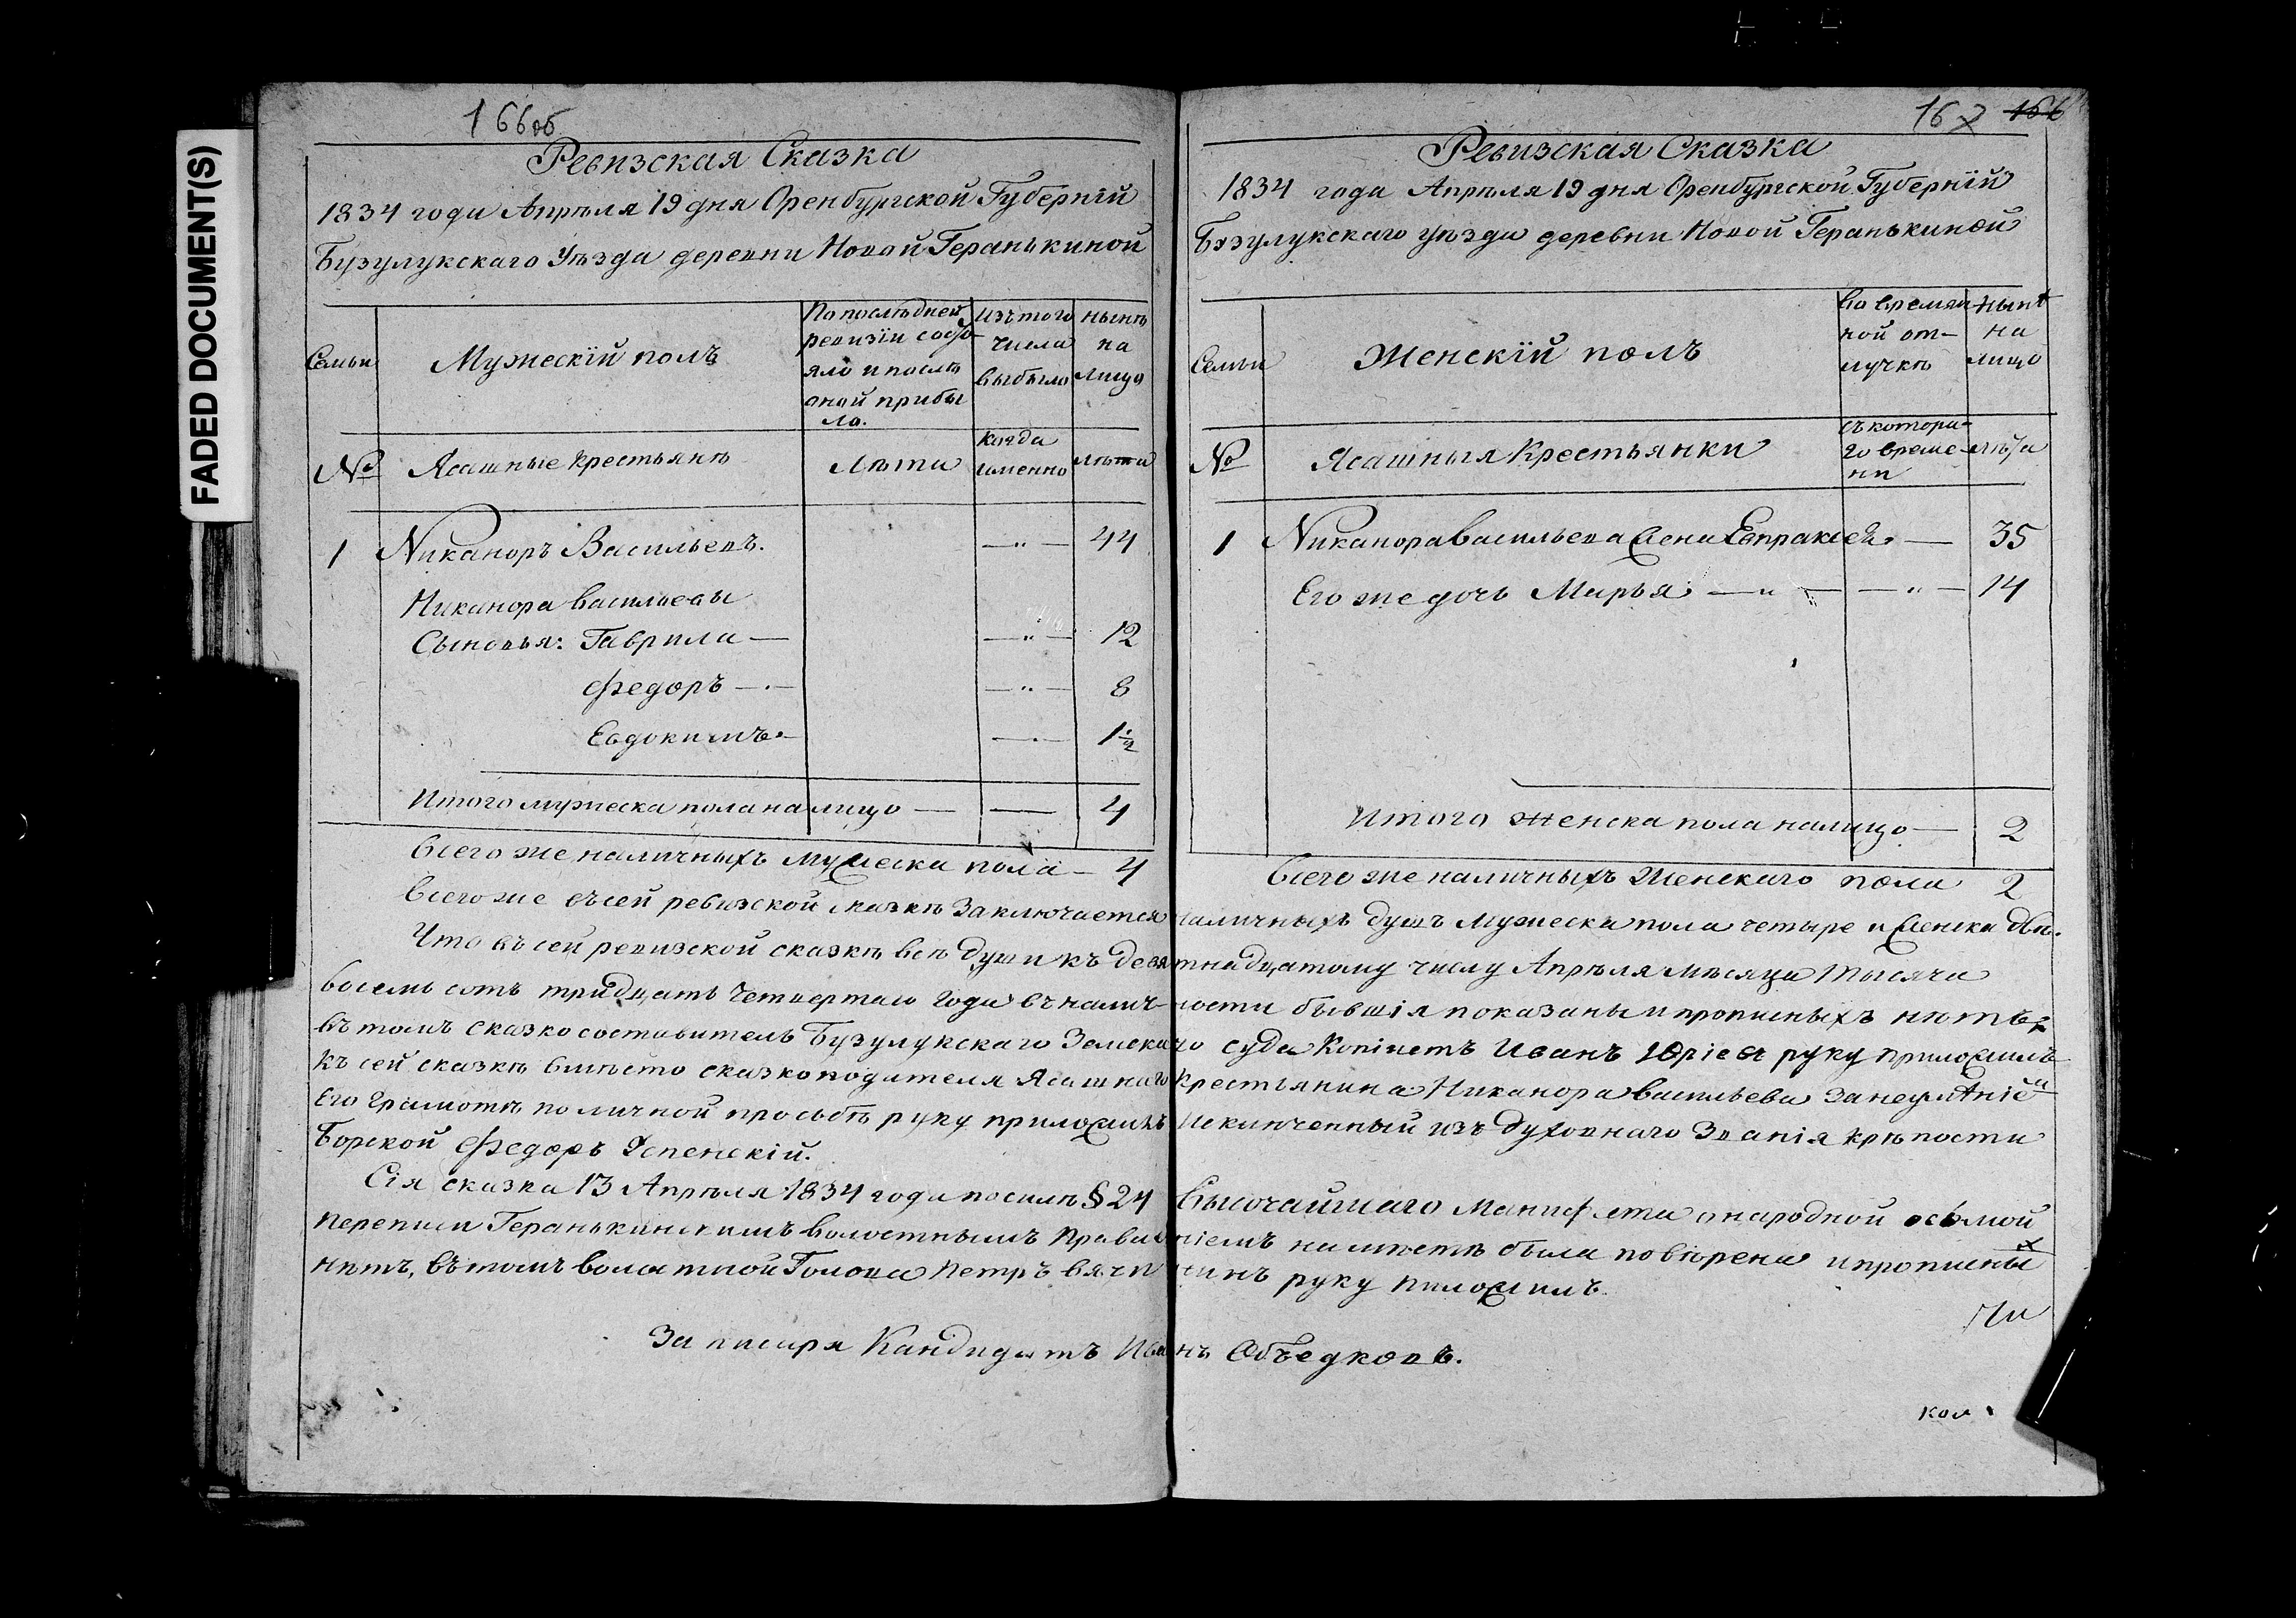 FADED DOCUMENT(S)
166об
Ревизская Сказка
1834 года Апрѣля 19 дня Оренбургской Губерніи
Бузулукскаго Уѣзда деревни Новой Геранькиной
Семьи
Мужескій полъ
По послѣдней
ревизіи состо-
яло и послѣ
оной прибы
ло.
изъ того
числа
выбыло
нынѣ
на
лицо
№
Ясашные крестьянѣ
лѣта
когда
именно
лѣта
1 Никаноръ Васильевъ. — " — 44
Никанора Васильевы
Сыновья: Гаврила — — " — 12
Федоръ — . — — " — 8
Евдокимъ. — — . — 1½
Итого мужеска пола на лицо — — 4
Всего же наличныхъ мужеска пола — 4
167 166
Ревизская Сказка
1834 года Апрѣля 19 дня Оренбургской Губерніи
Бузулукскаго уѣзда деревни Новой Геранькиной
Семьи
Женскій полъ
Во времян
ной от-
лучкѣ
нынѣ
на
лицо
№
Ясашныя Крестьянки
съ котора-
го време-
ни
лѣта
1 Никанора Васильева жена Евпраксея — 35
Его же дочь Марья. — " — — " — 14
Итого женска пола налицо — 2
Всего же наличныхъ Женскаго пола 2
Всего же въ сей ревизской сказкѣ Заключается наличныхъ душъ Мужеска пола четыре и женска двѣ.
Что въ сей ревизской сказкѣ всѣ души къ девятнадцатому числу Апрѣля мѣсяца тысяча
восемь сотъ тридцать четвертаго года въ наличности бывшія показаны и прописныхъ нѣтъ
въ томъ сказко составитель Бузулукскаго Земскаго суда Копіистъ Иванъ Юріевъ руку приложилъ
Къ сей сказкѣ вмѣсто сказкоподателя Ясашнаго Крестьянина Никанора Васильева за неумѣніем
Его Грамотѣ по личной просьбѣ руку приложилъ Изключенный изъ Духовнаго Званія крѣпости
Борской Федоръ Успенскій.
Сія сказка 13 Апрѣля 1834 года по силѣ § 24 Высочайшаго Манифеста о народной осьмой
переписи Геранькинскимъ Волостнымъ Правленіемъ на мѣстѣ была повѣрена и прописных
нѣтъ, въ томъ волостной Голова Петръ руку приложилъ
За писаря Кандидатъ Иванъ Объедковъ.